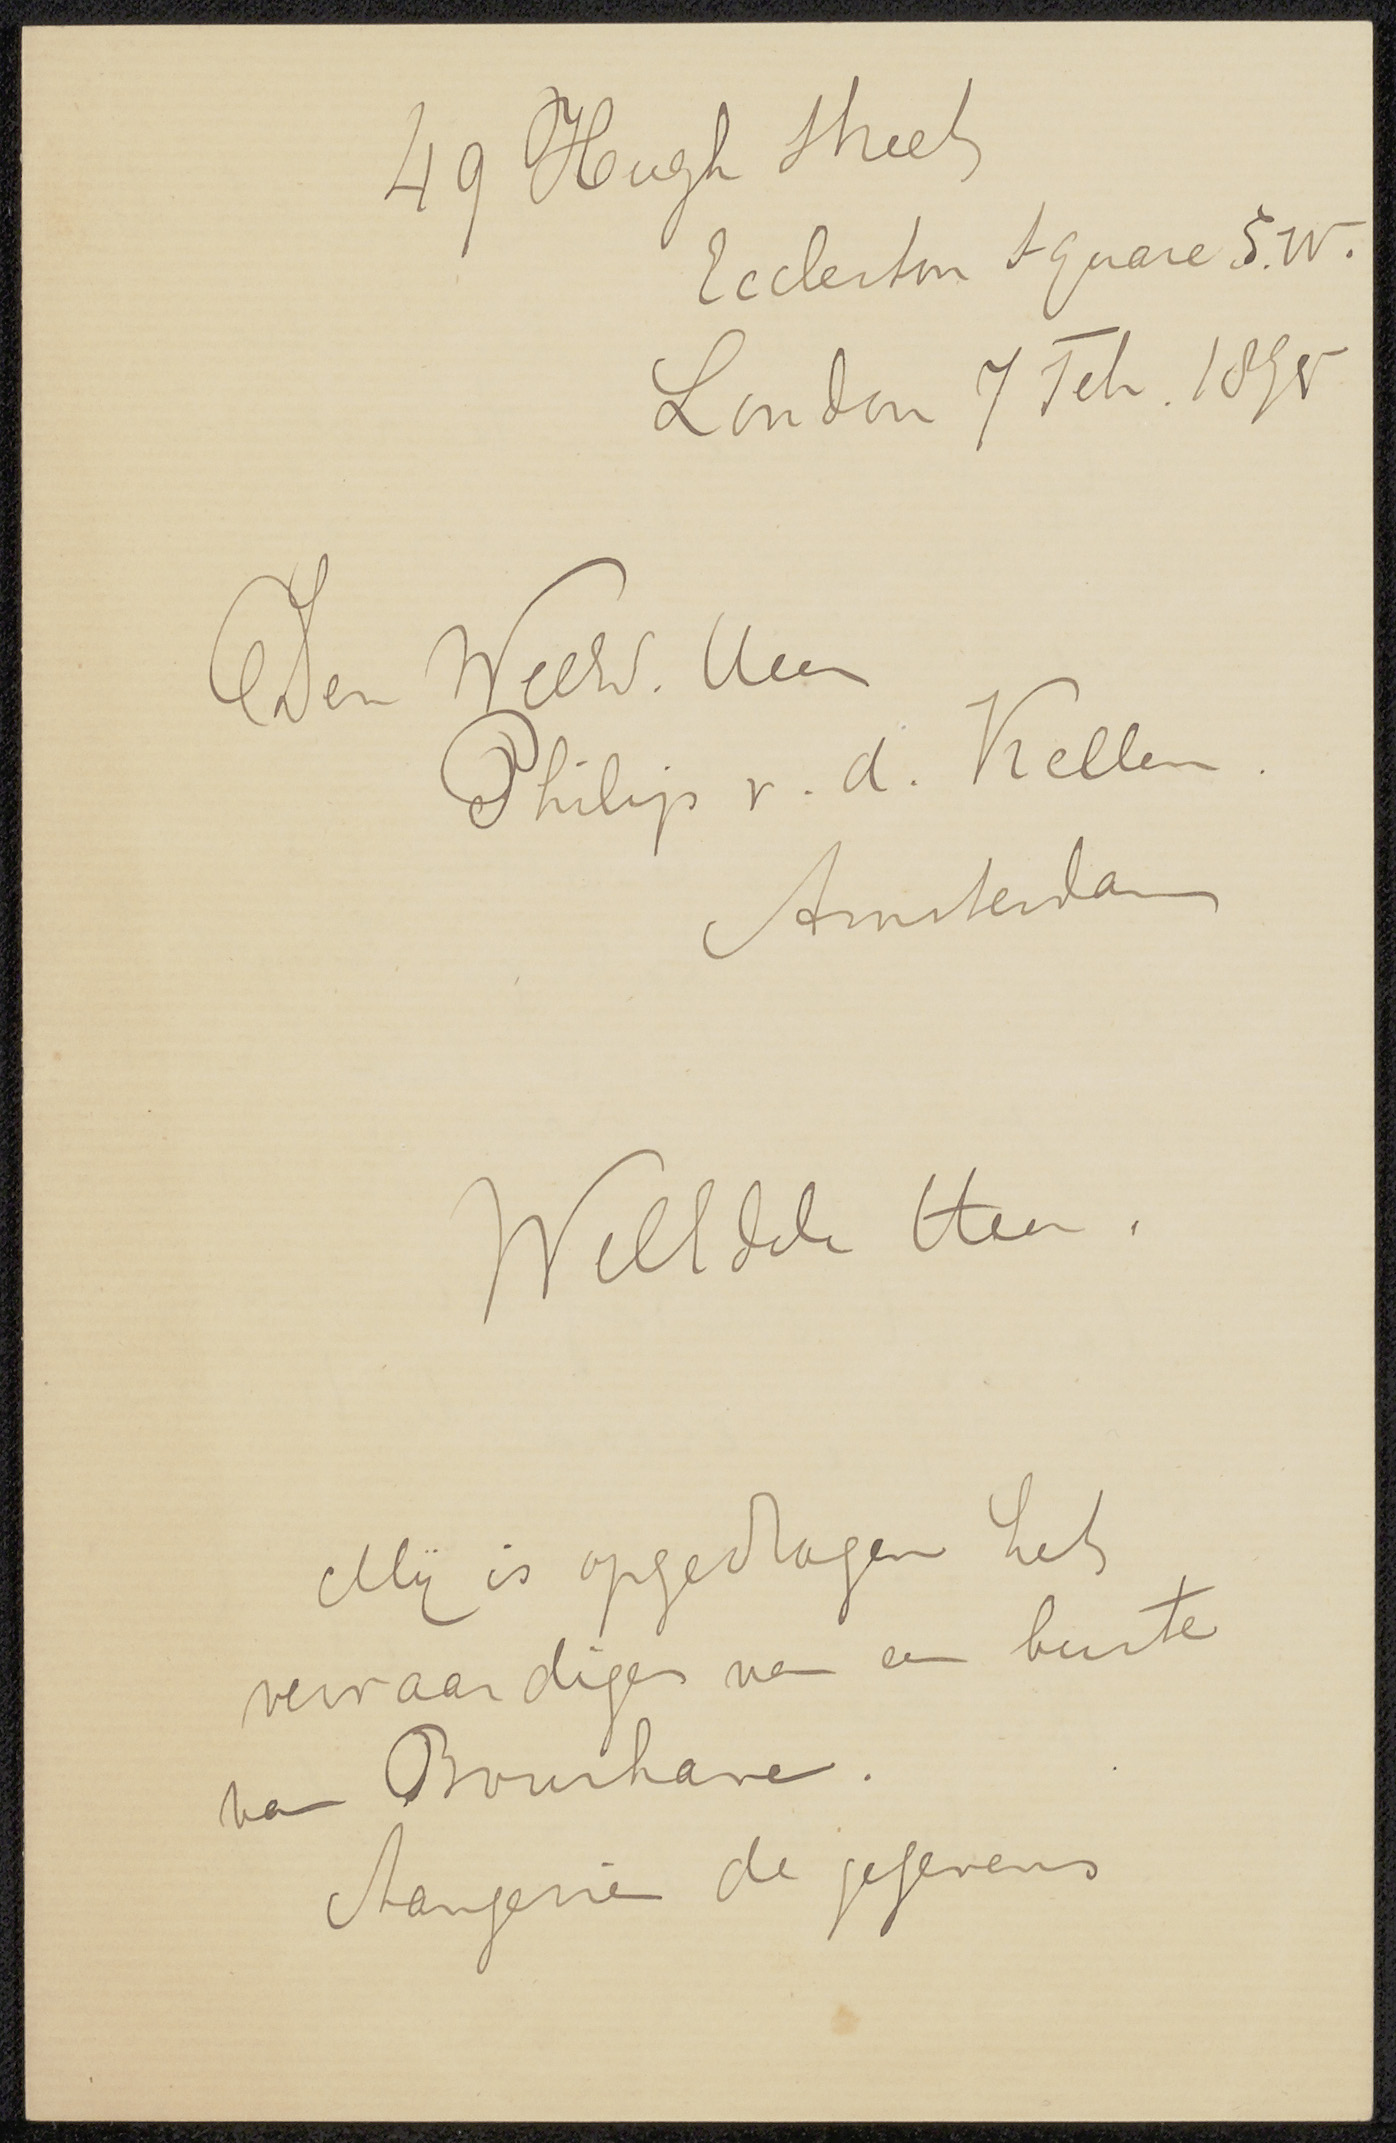 49 Hugh Street
Eccleston Square S.W.
London 7 Feb. 1895
Den WelEd. Heer
Philip v. d. Kellen.
Amsterdam
WelEdele Heer.
Mij is opgedragen het
vervaardigen van een buste
van Bourhave.
Aangezien de gegevens